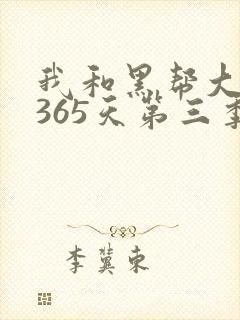 我和黑帮大
365天第三季
李冀东